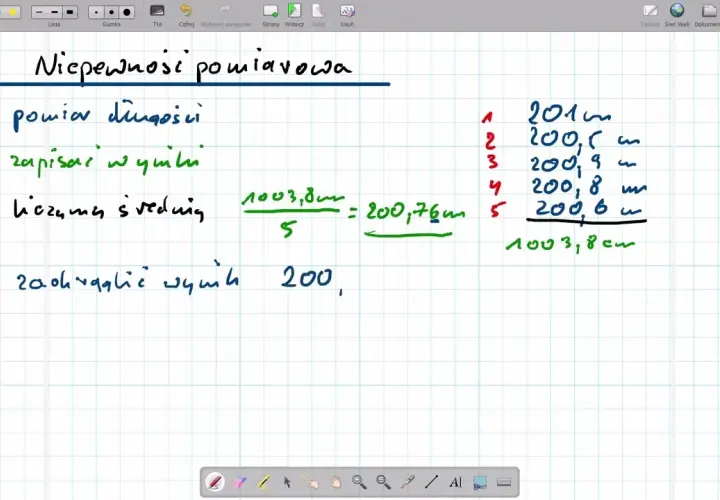 Linia Gumka Tło Cofnij Strony Wstecz Dalej Usuń Tablica Sieć Web Dokument
Niepewność pomiarowa
pomiar długości
zapisać wyniki
liczymy średnią 1003,8cm / 5 = 200,76cm
zaokrąglić wynik 200,
1 201cm
2 200,5 cm
3 200,9 cm
4 200,8 cm
5 200,6 cm
1003,8cm